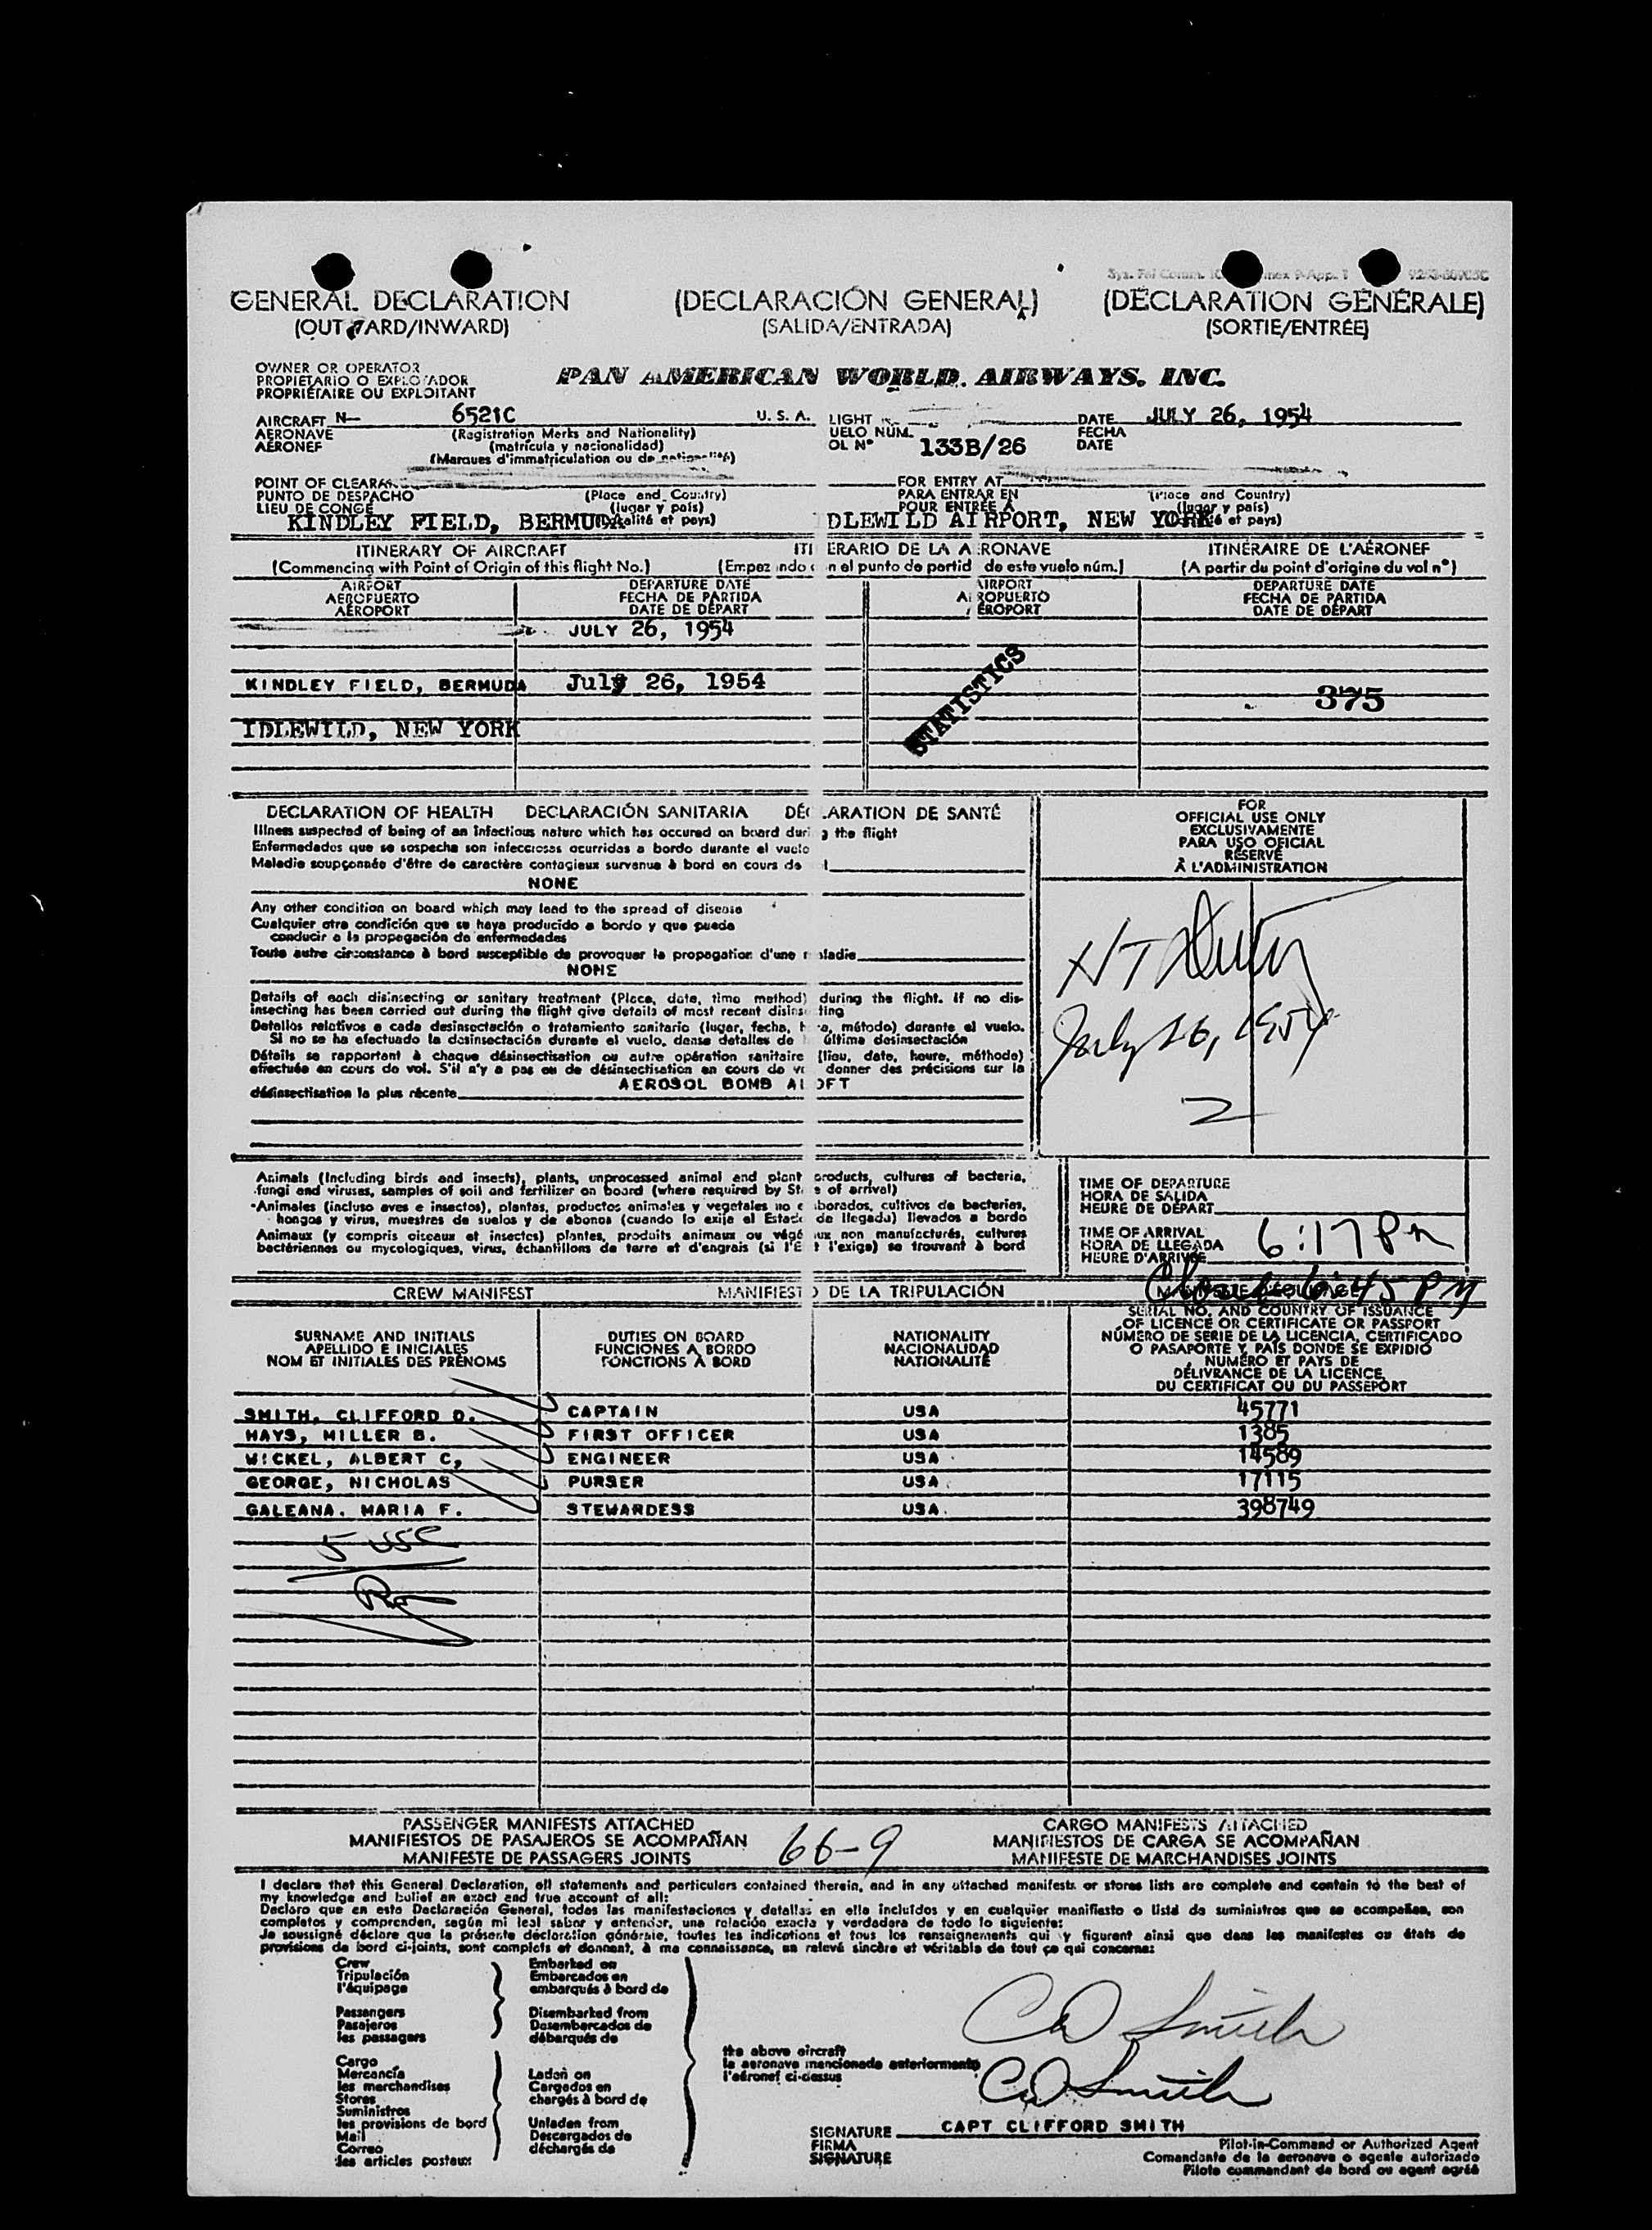 GENERAL DECLARATION (DECLARACIÓN GENERAL) (DÉCLARATION GÉNÉRALE)
(OUT ARD/INWARD) (SALIDA/ENTRADA) (SORTIE/ENTRÉE)
OWNER OR OPERATOR
PROPIETARIO O EXPLOTADOR
PROPRIÉTAIRE OU EXPLOITANT
PAN AMERICAN WORLD AIRWAYS, INC.
AIRCRAFT N— 6521C U. S. A. LIGHT DATE JULY 26, 1954
AERONAVE (Registration Marks and Nationality) UELO NÚM. FECHA
AÉRONEF (matrícula y nacionalidad) OL N° 133B/26 DATE
(Marques d'immatriculation ou de nationalité)
POINT OF CLEARAN FOR ENTRY AT
PUNTO DE DESPACHO (Place and Country) PARA ENTRAR EN (Place and Country)
LIEU DE CONGÉ (lugar y país) POUR ENTRÉE À (lugar y país)
KINDLEY FIELD, BERMUDA alité et pays) DLEWILD AIRPORT, NEW YORK é et pays)
ITINERARY OF AIRCRAFT ITI ERARIO DE LA A RONAVE ITINÉRAIRE DE L'AÉRONEF
(Commencing with Point of Origin of this flight No.) (Empez ndo n el punto de partid de este vuelo núm.) (A partir du point d'origine du vol n°)
AIRPORT DEPARTURE DATE AIRPORT DEPARTURE DATE
AEROPUERTO FECHA DE PARTIDA AEROPUERTO FECHA DE PARTIDA
AÉROPORT DATE DE DÉPART ÉROPORT DATE DE DÉPART
JULY 26, 1954
KINDLEY FIELD, BERMUDA July 26, 1954 STATISTICS 375
IDLEWILD, NEW YORK
DECLARATION OF HEALTH DECLARACIÓN SANITARIA DÉC ARATION DE SANTÉ
Illness suspected of being of an infectious nature which has occured on board duri g the flight
Enfermedades que se sospecha son infecciosas ocurridas a bordo durante el vuelo
Maladie soupçonnée d'être de caractère contagieux survenue à bord en cours de l
NONE
Any other condition on board which may lead to the spread of disease
Cualquier otra condición que se haya producido a bordo y que pueda
conducir a la propagación de enfermedades
Toute autre circonstance à bord susceptible de provoquer la propagation d'une m aladie
NONE
Details of each disinsecting or sanitary treatment (Place, date, time method) during the flight. If no dis-
insecting has been carried out during the flight give details of most recent disinse ting
Detalles relativos a cada desinsectación o tratamiento sanitario (lugar, fecha, h ra, método) durante el vuelo.
Si no se ha efectuado la desinsectación durante el vuelo, danse detalles de última desinsectación
Détails se rapportant à chaque désinsectisation ou autre opération sanitaire (lieu, date, heure, méthode)
effectuée en cours de vol. S'il n'y a pas eu de désinsectisation en cours de vo donner des précisions sur la
AEROSOL BOMB AL OFT
désinsectisation la plus récente
FOR
OFFICIAL USE ONLY
EXCLUSIVAMENTE
PARA USO OFICIAL
RÉSERVÉ
À L'ADMINISTRATION
July 26, 1954
2
Animals (Including birds and insects), plants, unprocessed animal and plant products, cultures of bacteria,
fungi and viruses, samples of soil and fertilizer on board (where required by St e of arrival)
Animales (incluso aves e insectos), plantas, productos animales y vegetales no e aborados, cultivos de bacterias,
hongos y virus, muestras de suelos y de abonos (cuando lo exija el Estado de llegada) llevados a bordo
Animaux (y compris oiseaux et insectes) plantes, produits animaux ou végé aux non manufacturés, cultures
bactériennes ou mycologiques, virus, échantillons de terre et d'engrais (si l'É t l'exige) se trouvant à bord
TIME OF DEPARTURE
HORA DE SALIDA
HEURE DE DÉPART
TIME OF ARRIVAL
HORA DE LLEGADA
HEURE D'ARRIVÉE
6:17 PM
6:45 PM
CREW MANIFEST MANIFIESTO DE LA TRIPULACIÓN
SURNAME AND INITIALS DUTIES ON BOARD NATIONALITY SERIAL NO. AND COUNTRY OF ISSUANCE
APELLIDO E INICIALES FUNCIONES A BORDO NACIONALIDAD OF LICENCE OR CERTIFICATE OR PASSPORT
NOM ET INITIALES DES PRÉNOMS FONCTIONS À BORD NATIONALITÉ NÚMERO DE SERIE DE LA LICENCIA, CERTIFICADO
O PASAPORTE Y PAÍS DONDE SE EXPIDIÓ
NUMÉRO ET PAYS DE
DÉLIVRANCE DE LA LICENCE,
DU CERTIFICAT OU DU PASSEPORT
SMITH, CLIFFORD D. CAPTAIN USA 45771
HAYS, MILLER B. FIRST OFFICER USA 1385
WICKEL, ALBERT C, ENGINEER USA 14589
GEORGE, NICHOLAS PURSER USA 17115
GALEANA. MARIA F. STEWARDESS USA 398749
5 USC
PASSENGER MANIFESTS ATTACHED CARGO MANIFESTS ATTACHED
MANIFIESTOS DE PASAJEROS SE ACOMPAÑAN 66-9 MANIFIESTOS DE CARGA SE ACOMPAÑAN
MANIFESTE DE PASSAGERS JOINTS MANIFESTE DE MARCHANDISES JOINTS
I declare that this General Declaration, all statements and particulars contained therein, and in any attached manifests or stores lists are complete and contain to the best of
my knowledge and belief an exact and true account of all:
Declaro que en esta Declaración General, todas las manifestaciones y detalles en ella incluídos y en cualquier manifiesto o lista de suministros que se acompañan, son
completos y comprenden, según mi leal saber y entender, una relación exacta y verdadera de todo lo siguiente:
Je soussigné déclare que la présente déclaration générale, toutes les indications et tous les renseignements qui y figurent ainsi que dans les manifestes ou états de
provisions de bord ci-joints, sont complets et donnent, à ma connaissance, un relevé sincère et véritable de tout ce qui concerne:
Crew Embarked on
Tripulación Embarcados en
l'équipage embarqués à bord de
Passengers Disembarked from
Pasajeros Desembarcados de
les passagers débarqués de
Cargo
Mercancía Laden on
les marchandises Cargados en
Stores chargés à bord de
Suministros
les provisions de bord Unladen from
Mail Descargados de
Correo déchargés de
les articles postaux
the above aircraft
la aeronave mencionada anteriormente
l'aéronef ci-dessus
CD Smith
CD Smith
SIGNATURE CAPT CLIFFORD SMITH
FIRMA
SIGNATURE
Pilot-in-Command or Authorized Agent
Comandante de la aeronave o agente autorizado
Pilote commandant de bord ou agent agréé